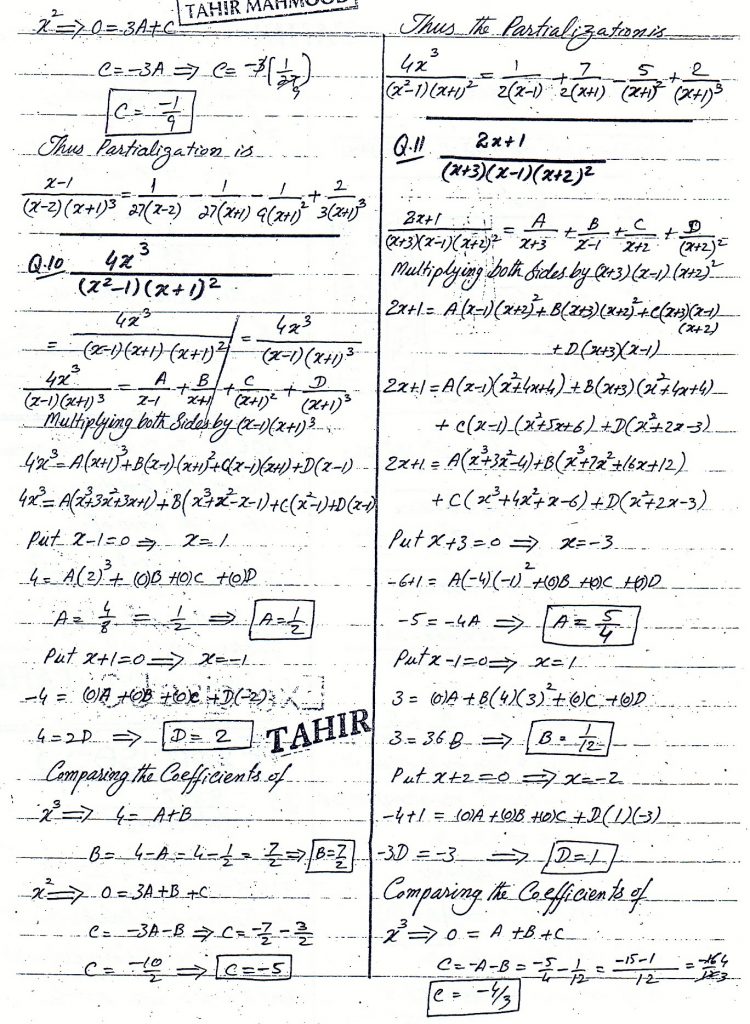 TAHIR MAHMOOD
x² ⇒ 0 = 3A + C
C = -3A ⇒ C = -3(1/27) 9
C = -1/9
Thus Partialization is
x-1/(x-2)(x+1)³ = 1/27(x-2) - 1/27(x+1) - 1/9(x+1)² + 2/3(x+1)³
Q.10 4x³/(x²-1)(x+1)²
= 4x³/(x-1)(x+1)(x+1)² = 4x³/(x-1)(x+1)³
4x³/(x-1)(x+1)³ = A/x-1 + B/x+1 + C/(x+1)² + D/(x+1)³
Multiplying both Sides by (x-1)(x+1)³
4x³ = A(x+1)³ + B(x-1)(x+1)² + C(x-1)(x+1) + D(x-1)
4x³ = A(x³+3x²+3x+1) + B(x³+x²-x-1) + C(x²-1) + D(x-1)
Put x-1=0 ⇒ x=1
4 = A(2)³ + (0)B + (0)C + (0)D
A = 4/8 = 1/2 ⇒ A = 1/2
Put x+1=0 ⇒ x=-1
-4 = (0)A + (0)B + (0)C + D(-2)
4 = 2D ⇒ D = 2
TAHIR
Comparing the Coefficients of
x³ ⇒ 4 = A+B
B = 4-A = 4-1/2 = 7/2 ⇒ B=7/2
x² ⇒ 0 = 3A+B+C
C = -3A-B ⇒ C = -7/2 - 3/2
C = -10/2 ⇒ C = -5
Thus the Partialization is
4x³/(x²-1)(x+1)² = 1/2(x-1) + 7/2(x+1) - 5/(x+1)² + 2/(x+1)³
Q.11 2x+1/(x+3)(x-1)(x+2)²
2x+1/(x+3)(x-1)(x+2)² = A/x+3 + B/x-1 + C/x+2 + D/(x+2)²
Multiplying both Sides by (x+3)(x-1)(x+2)²
2x+1 = A(x-1)(x+2)² + B(x+3)(x+2)² + C(x+3)(x-1)
(x+2)
+ D(x+3)(x-1)
2x+1 = A(x-1)(x²+4x+4) + B(x+3)(x²+4x+4)
+ C(x-1)(x²+5x+6) + D(x²+2x-3)
2x+1 = A(x³+3x²-4) + B(x³+7x²+16x+12)
+ C(x³+4x²+x-6) + D(x²+2x-3)
Put x+3=0 ⇒ x=-3
-6+1 = A(-4)(-1)² + (0)B + (0)C + (0)D
-5 = -4A ⇒ A = 5/4
Put x-1=0 ⇒ x=1
3 = (0)A + B(4)(3)² + (0)C + (0)D
3 = 36B ⇒ B = 1/12
Put x+2=0 ⇒ x=-2
-4+1 = (0)A + (0)B + (0)C + D(1)(-3)
-3D = -3 ⇒ D=1
Comparing the Coefficients of
x³ ⇒ 0 = A+B+C
C = -A-B = -5/4 - 1/12 = -15-1/12 = -16 4/12 3
C = -4/3